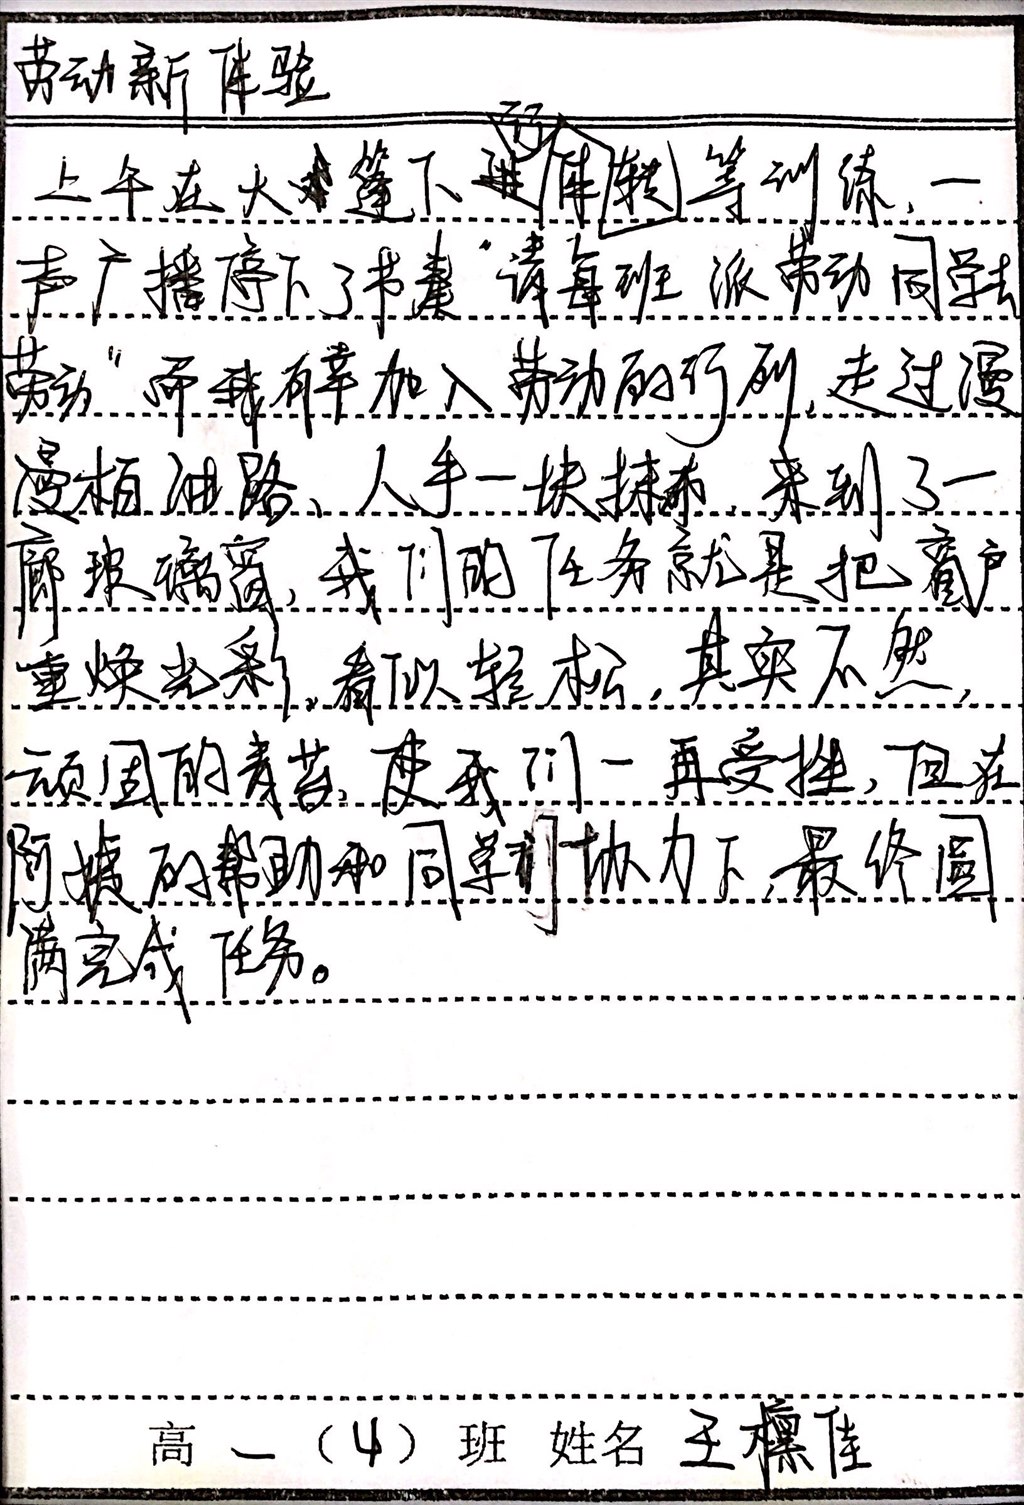 劳动新体验
上午在大篷下进行体转等训练,一
声广播停下了节奏“请每班派劳动同学去
劳动”而我有幸加入劳动的行列,走过漫
漫柏油路、人手一块抹布,来到了一
廊玻璃窗,我们的任务就是把窗户
重焕光彩,看似轻松,其实不然,
顽固的青苔,使我们一再受挫,但在
阿姨的帮助和同学们协力下,最终圆
满完成任务。
高一(4)班 姓名 王檩佳